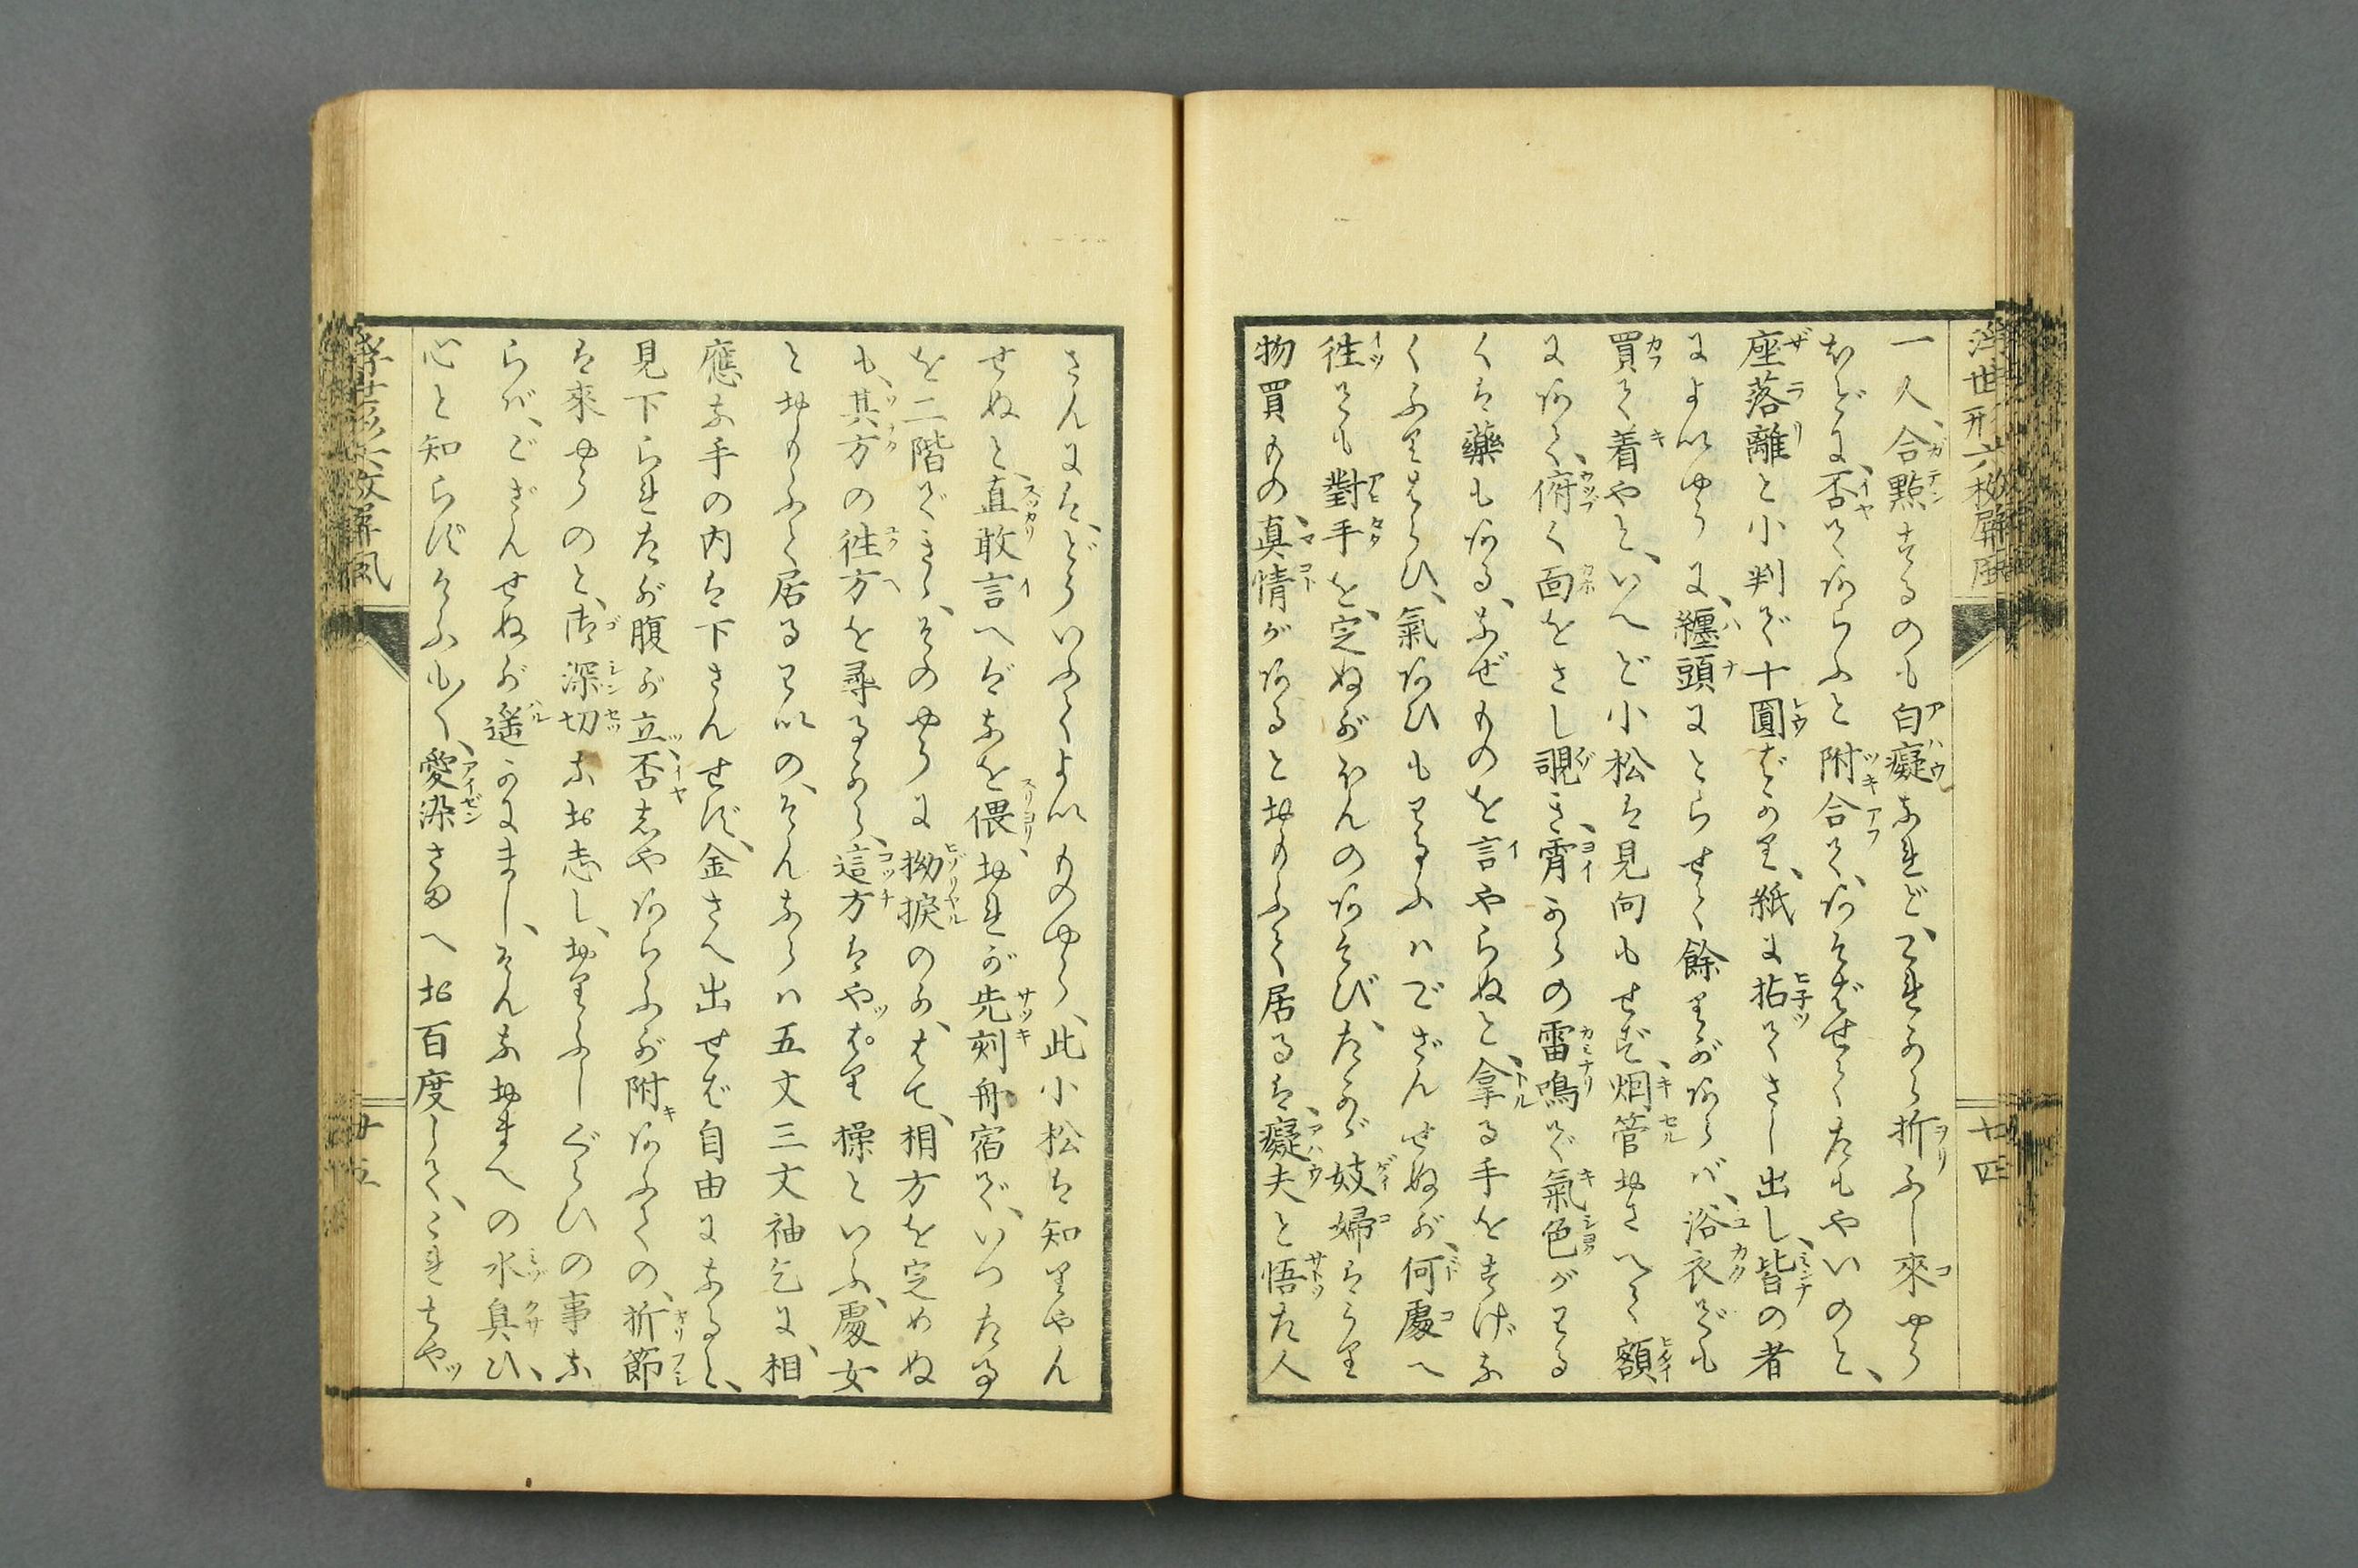 浮世形六枚屏風 廿四
一人、合點するのも白癡なれど、これから折ふし來やう
ほどに、否であらふと附合て、あそばせてたもやいのと、
座落離と小判で十圓ばかり、紙に拈てさし出し、皆の者
によいやうに、纏頭にとらせて餘りがあらバ、浴衣でも
買て着やと、いへど小松は見向もせず、烟管おさへて額
にあて、俯く面をさし覗き、霄からの雷鳴で氣色がわる
くは藥もある、なぜものを言やらぬと、拿る手をすげな
くふりはらひ、氣あひもわるふハござんせぬが、何處へ
徃ても對手を、定ぬがほんのあそび、たかが妓婦はうり
物買もの、真情があるとおもふて居るは、癡夫と悟た人
さんには、どういふてよいものやら、此小松は知りやん
せぬと、直敢言へばなを偎、おれが先刻舟宿で、いつた事
を二階できゝ、そのやうに拗捩のか、はて、相方を定めぬ
も、其方の徃方を尋るから、這方はやッぱり操といふ、處女
とおもふて居るわいの、そんならハ五文三文袖乞に、相
應な手の内は下さんせず、金さへ出せば自由になると、
見下られたが腹が立、否じやあらふが附あふての、折節
は來やうのと、御深切なお志し、おりふしぐらひの事な
らバ、ござんせぬが遥かにまし、そんなおまへの水臭ひ、
心と知らずけふも〳〵、愛染さまへお百度して、これちやッ
浮世形六枚屏風 廿五